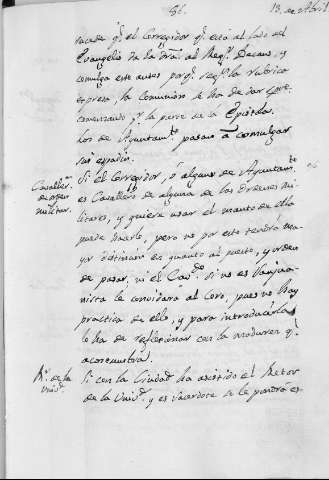 86.
13. de Abril
sacada qe. el Corregidor qe. está al lado del
Evangelio da la Mno. al Regr. Decano, y
comulga este antes porqe. segn. la rubrica
expresa, la Comunion se ha de dar
comenzando pr. la parte de la Epistola.
los de Ayuntamto. pasan á comulgar
sin espadin.
Caballers.
de orden
militar.
Si el Corregidor, ó alguno de Ayuntamto.
es Cavallero de alguna de las Ordenes mi-
litares, y quiere usar el manto de ella
puede hacerlo, pero no por esto tendrá ma-
yor distincion en quanto al puesto, y orden
de pasar; ni el Cavdo. si no es Sanjua-
nista le convidara al Coro, pues no hay
practica de ello, y para introducirla
se ha de reflexionar con la madurez qe.
acostumbra.
Rr. de la
Univd.
Si con la Ciudad ha asistido el Retor
de la Univd. y es sacerdote se le pondrá es-